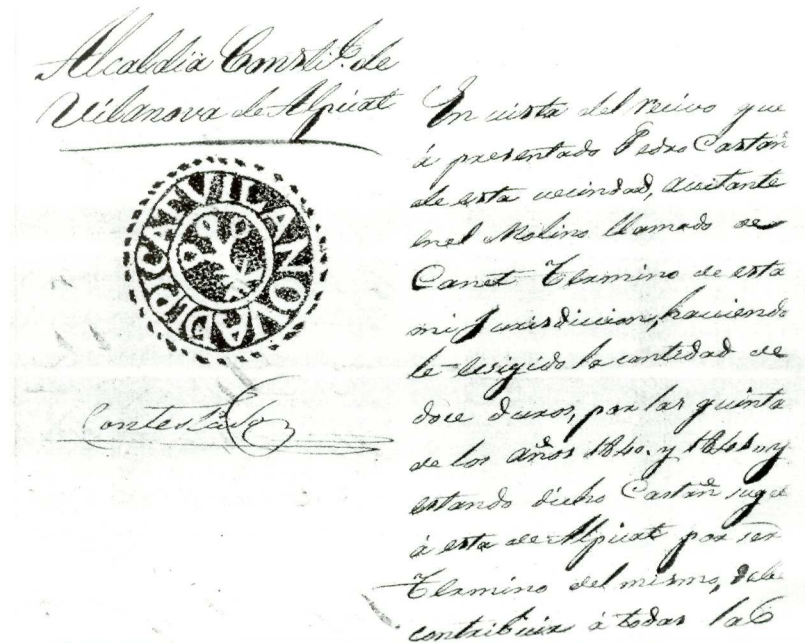 Alcaldia Consti.l de
Vilanova de Alpicat
VILANOVA DLPICAT
Contestado
En vista del recivo que
á presentado Pedro Castañ
de esta vecindad, avitante
en el Molino llamado de
Canet Termino de esta
mi Jurisdiccion, haviendo
le
la cantidad de
doce duros, por las quinta
de los años 1840. y 1841 y
estando dicho Castañ suge
á esta de Alpicat por ser
Termino del mismo, debe
contribuir á todas las